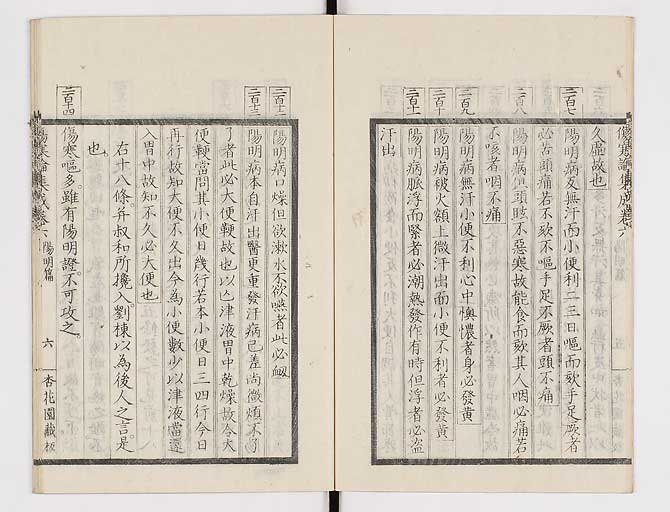 傷寒論集成卷六　陽明篇　五　杏花園藏板
久虛故也
二百七
陽明病反無汗而小便利二三日嘔而欬手足厥者
必苦頭痛若不欬不嘔手足不厥者頭不痛
二百八
陽明病但頭眩不惡寒故能食而欬其人咽必痛若
不咳者咽不痛
二百九
陽明病無汗小便不利心中懊憹者身必發黃
二百十
陽明病被火額上微汗出而小便不利者必發黃
二百十一
陽明病脈浮而緊者必潮熱發作有時但浮者必盜
汗出
二百十二
陽明病口燥但欲漱水不欲嚥者此必衂
二百十三
陽明病本自汗出醫更重發汗病已差尚微煩不了
了者此必大便鞕故也以亡津液胃中乾燥故令大
便鞕當問其小便日幾行若本小便日三四行今日
再行故知大便不久出今為小便數少以津液當還
入胃中故知不久必大便也
右十八條幷叔和所攙入劉棟以為後人之言是
也
二百十四
傷寒嘔多雖有陽明證不可攻之
傷寒論集成卷六　陽明篇　六　杏花園藏板